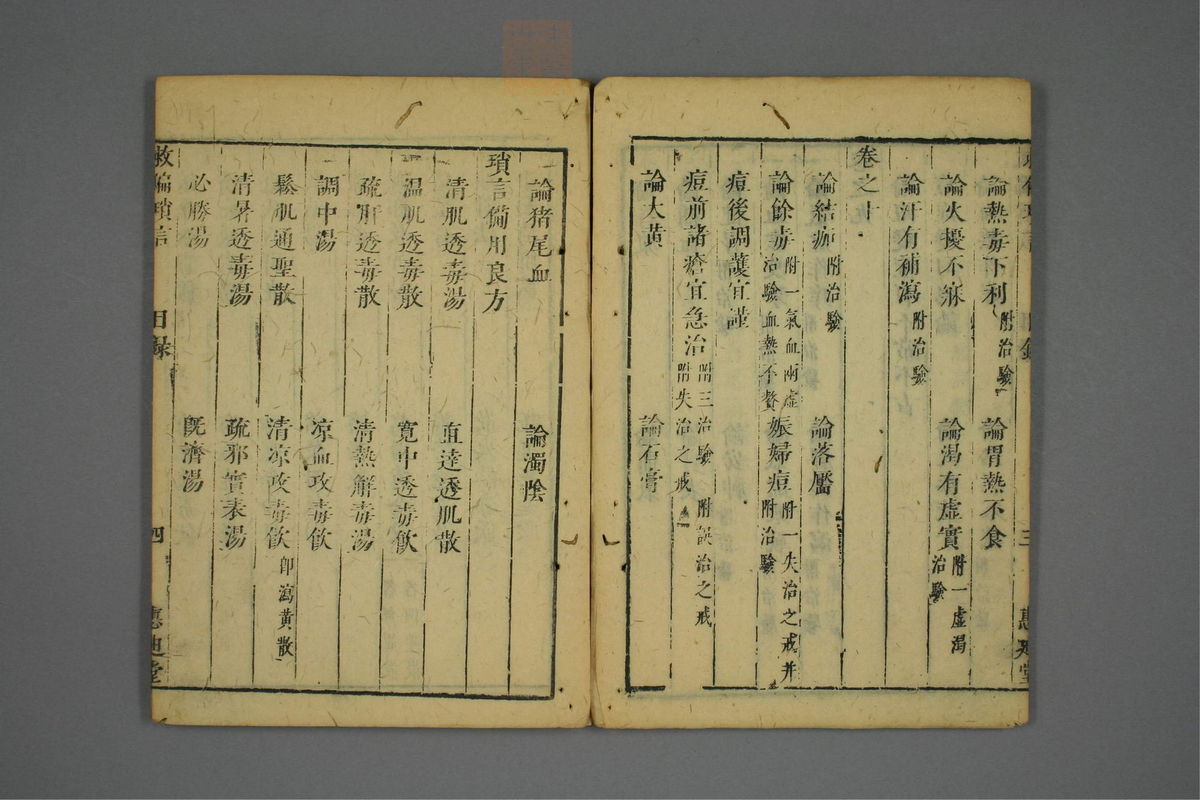 論熱毒下利 附治驗 論胃熱不食
論火擾不寐 論渴有虛實 附一虛渴治驗
論汗有補瀉 附治驗
卷之十
論結痂 附治驗 論落靨
論餘毒 附一氣血兩虛治驗血熱不贅 娠婦痘 附一失治之戒并附治驗
痘後調護宜謹
痘前諸瘡宜急治 附三治驗 附誤治之戒 附失治之戒
論大黃 論石膏
論猪尾血 論濁陰
瑣言備用良方
清肌透毒湯 直達透肌散
温肌透毒散 寬中透毒飲
疏肝透毒散 清熱解毒湯
調中湯 凉血攻毒飲
鬆肌通聖散 清凉攻毒飲 即瀉黃散
清暑透毒湯 疏邪實表湯
必勝湯 既濟湯
救偏瑣言 目錄 四 惠迪堂